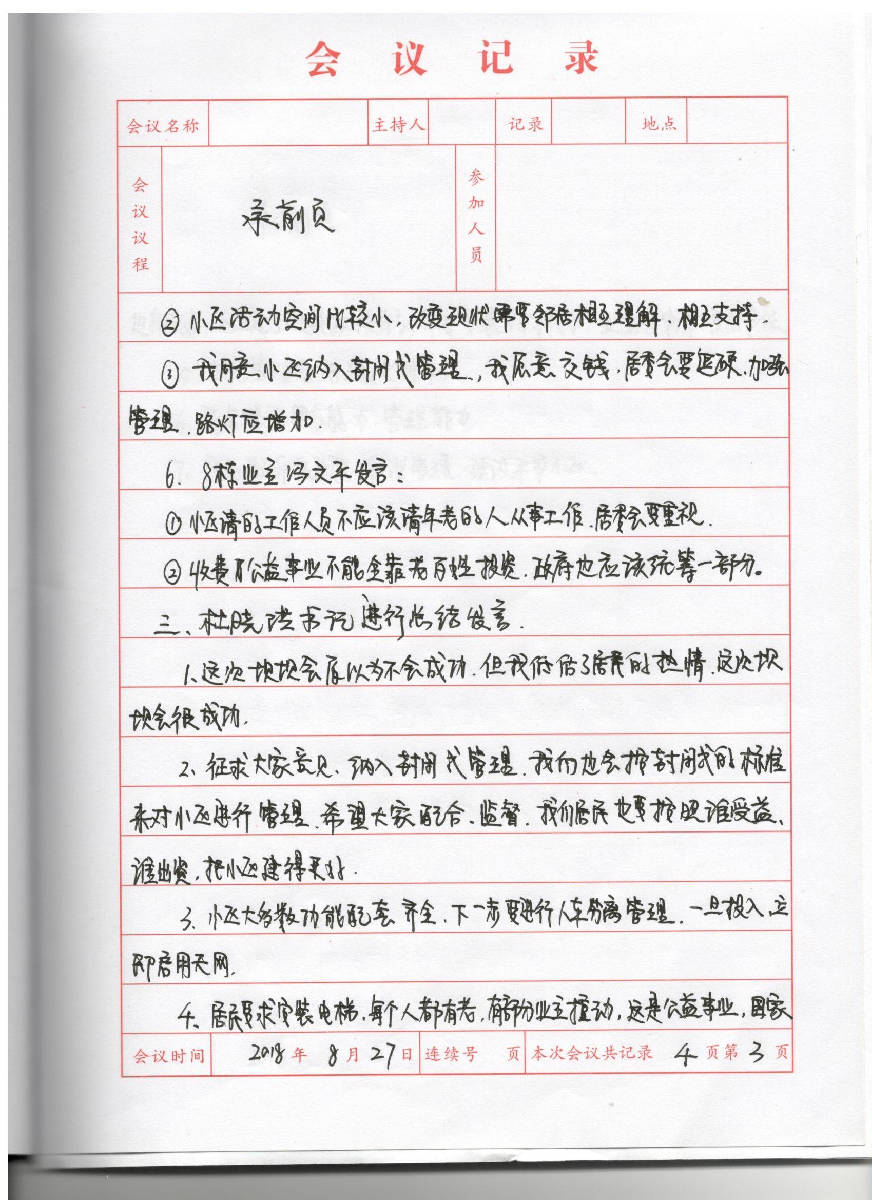 会议记录
会议名称 主持人 记录 地点
会议议程 承前页 参加人员
② 小区活动空间比较小，改变现状需要邻居相互理解，相互支持．
③ 我同意小区纳入封闭式管理，我愿意交钱，居委会要过硬，加强
管理，路灯应增加．
6、8栋业主冯文平发言：
① 小区请的工作人员不应该请年老的人从事工作，居委会要重视．
② 收费的公益事业不能全靠老百姓投资，政府也应该统筹一部分。
三、杜晓洪书记进行总结发言．
1、这次坝坝会原以为不会成功，但我低估了居民的热情，这次坝
坝会很成功．
2、征求大家意见，纳入封闭式管理，我们也会按封闭式的标准
来对小区进行管理，希望大家配合、监督，我们居民也要按照谁受益、
谁出资，把小区建得更好．
3、小区大多数功能配套齐全，下一步要进行人车分离管理，一旦投入，立
即启用天网．
4、居民要求安装电梯，每个人都有老，有部分业主推动，这是公益事业，国家
会议时间 2018年8月27日 连续号 页 本次会议共记录 4页第3页